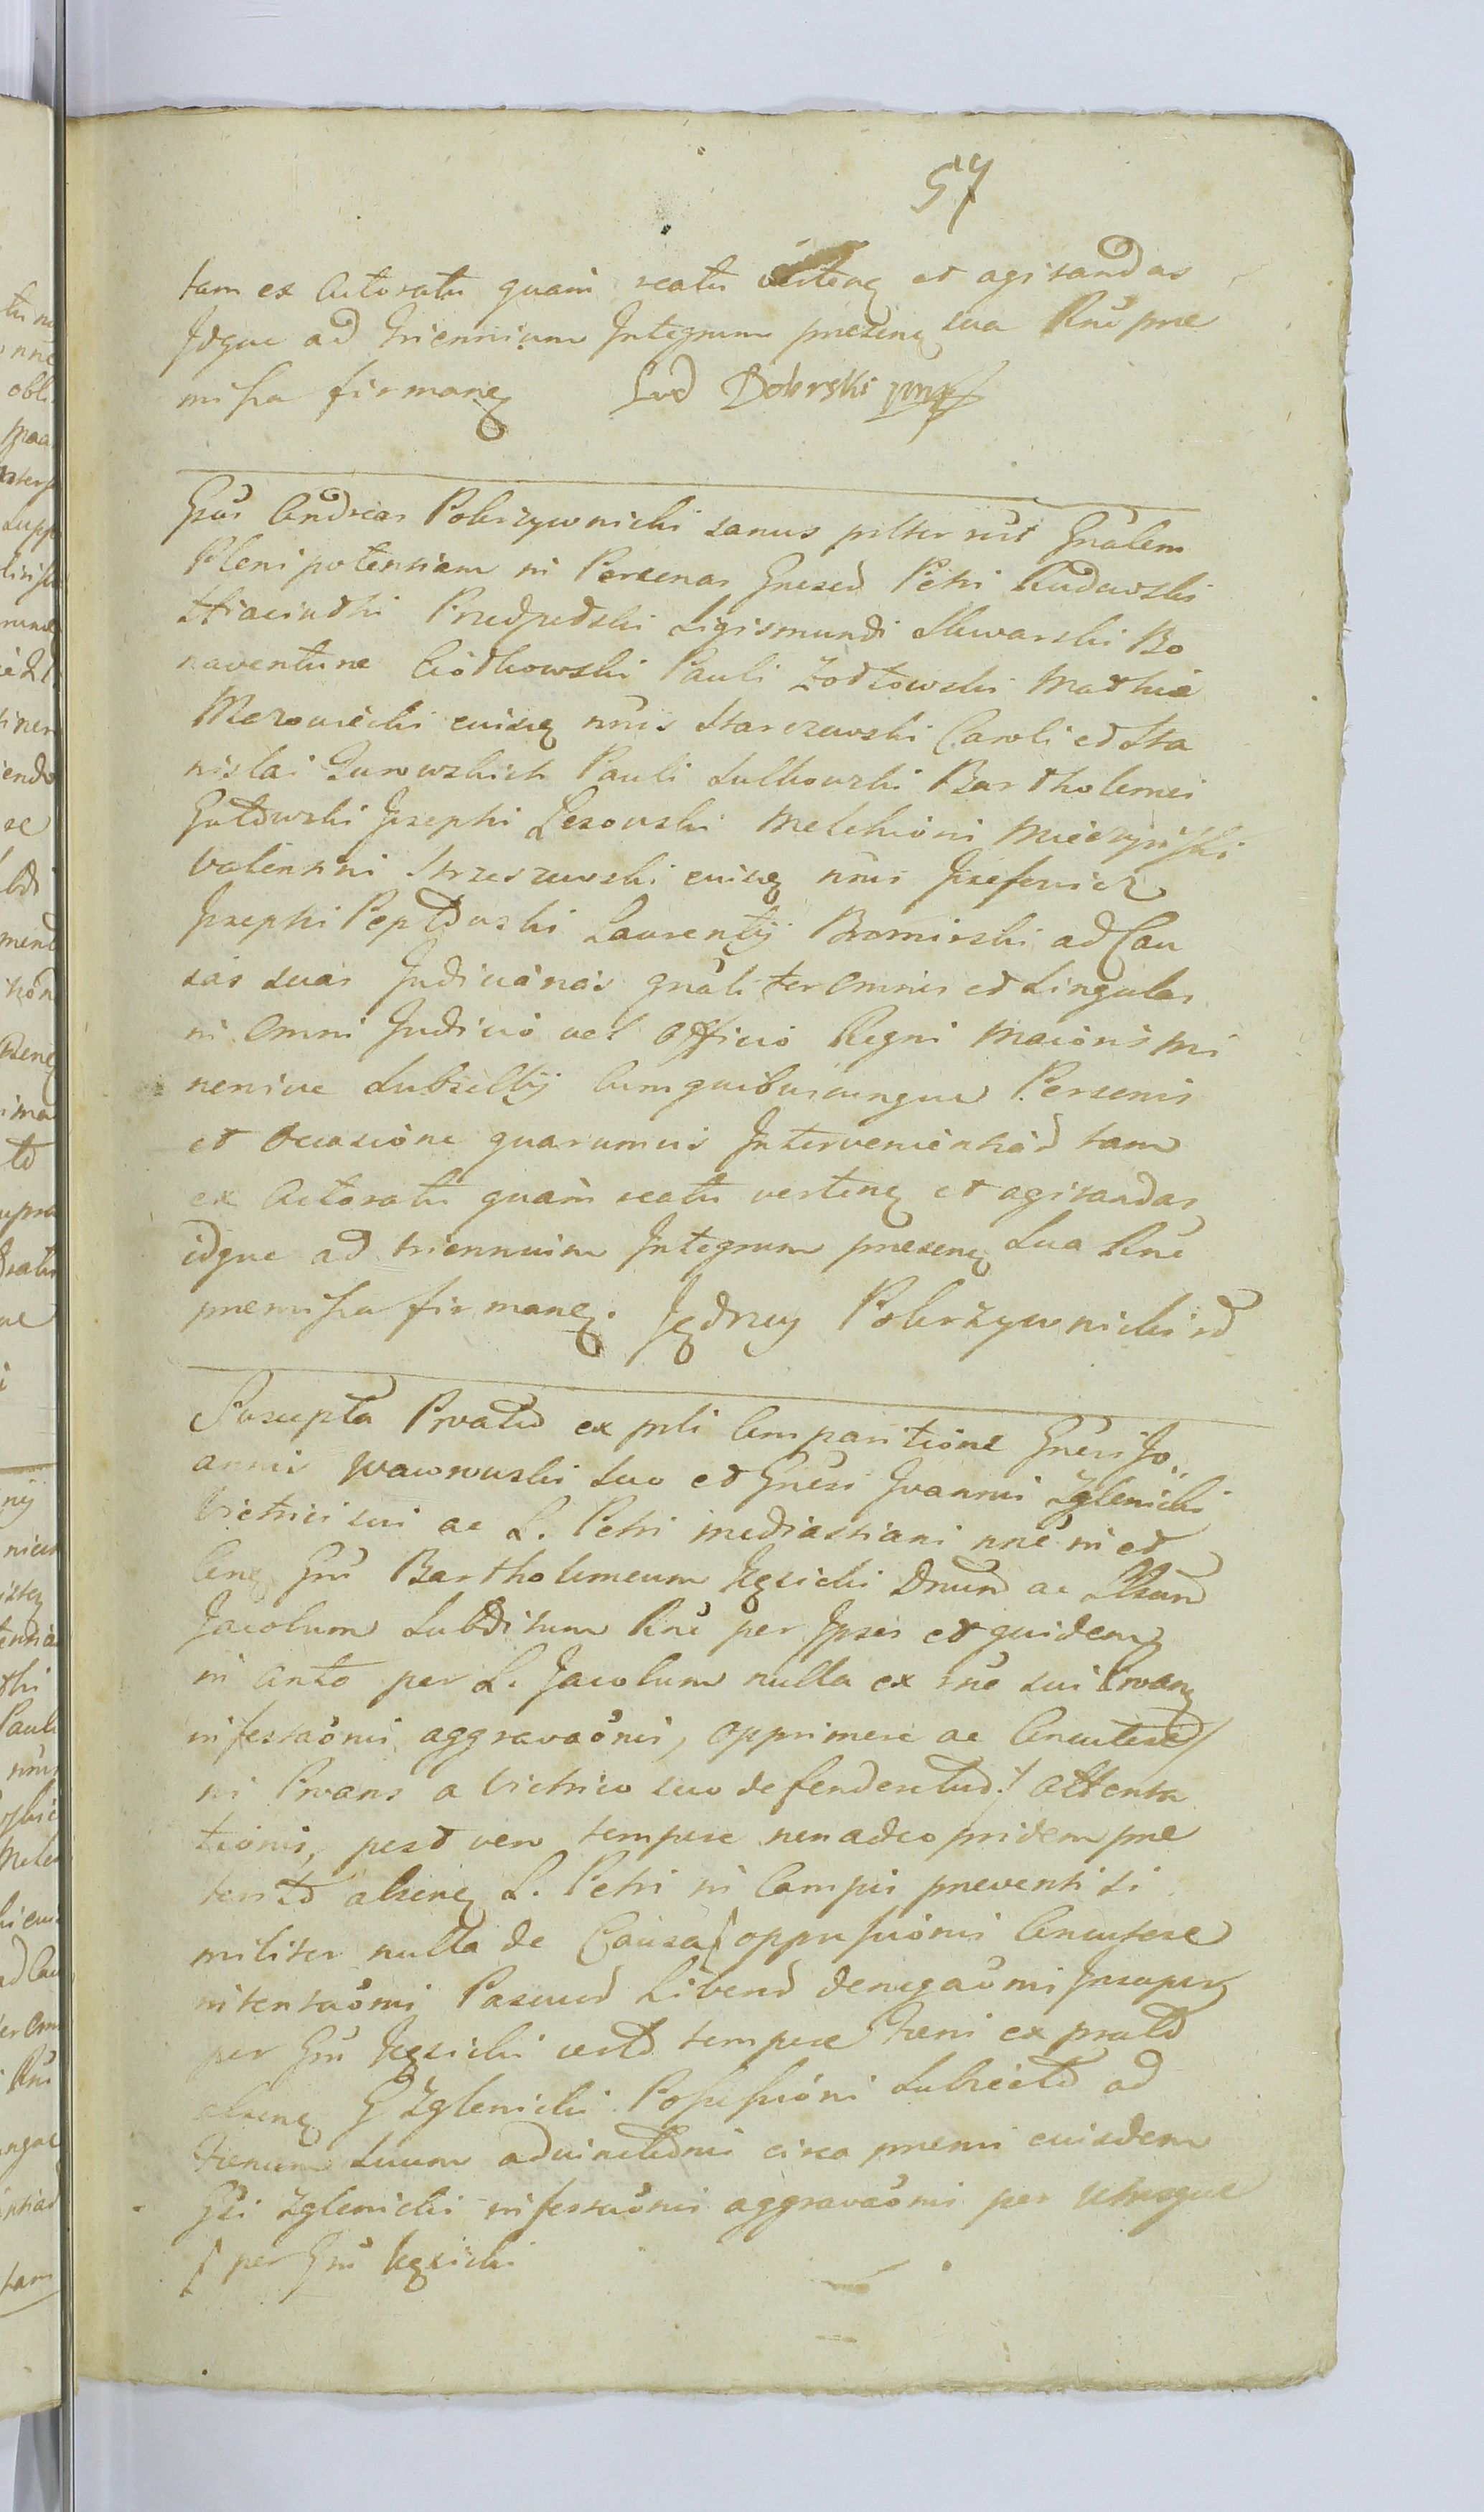 57
tam ex Actoratu quam reatu verten et agitandas
Idque ad triennium Integrum presen sua Rne pre
missa firman Lud Dobrski mp
Gsus Andreas Pokrzywnicki sanus pslter rut Gnalem
Plenipotentiam in Personas Gnesed Petri Rudowski
Hiacinthi Sigismundi Bo
naventure Ciotkowski Pauli Zoltowski Mathie
cuisuę nnis Starczewski Caroli et Sta
nislai Gurowskich Pauli Sulkowski Bartholomei
Gutowski Josephi Lesowski Melchioni
Valentini Strzeszewski cuisuę nnis
Josephi Laurentij Bromirski ad Cau
sas suas Judiciarias gnaliter omnes et Singulas
in Omni Judicio vel Officio Regni Maioris mi
norisve Subsellij Cum quibuscunque Personis
et Occasione quarumvis Intervenientiad tam
ex Actoratu quam reatu verten et agitandas
idque ad triennium Integrum presen Sua Rne
premissa firman. Jędrzey Pokrzywnicki rd
Suscepta Prott ex psli Comparitione Gnesi Jo
annis suo et Gnesi Joannis Zglenicki
Victrici sui ac L. Petri mediastiani nne in et
Con Gsm Bartholomeum Kęsicki Dnum ac
Jacobum Subditum Rne per Ipsos et quidem
in anto per L. Jacobum nulla ex rne sui
infestaonis aggravaonis, opprimere ac Concutere
ni a Victrico suo defenderetur / attenta
tionis, post vero tempore non adeo pridem pre
terito absen L. Petri in Campis preventi si
militer nulla de Causa / oppressionis Concutere
intentaonis Pascuod Libero denegaonis Insuper
per Gsm Kęsicki tempore feni ex prato
absen G Zglenicki Possessioni Subiecto ad
suum circa premi eiusdem
Gsi Zglenicki infestaonis aggravaonis per utrosque
/ per Gsm Kęsicki